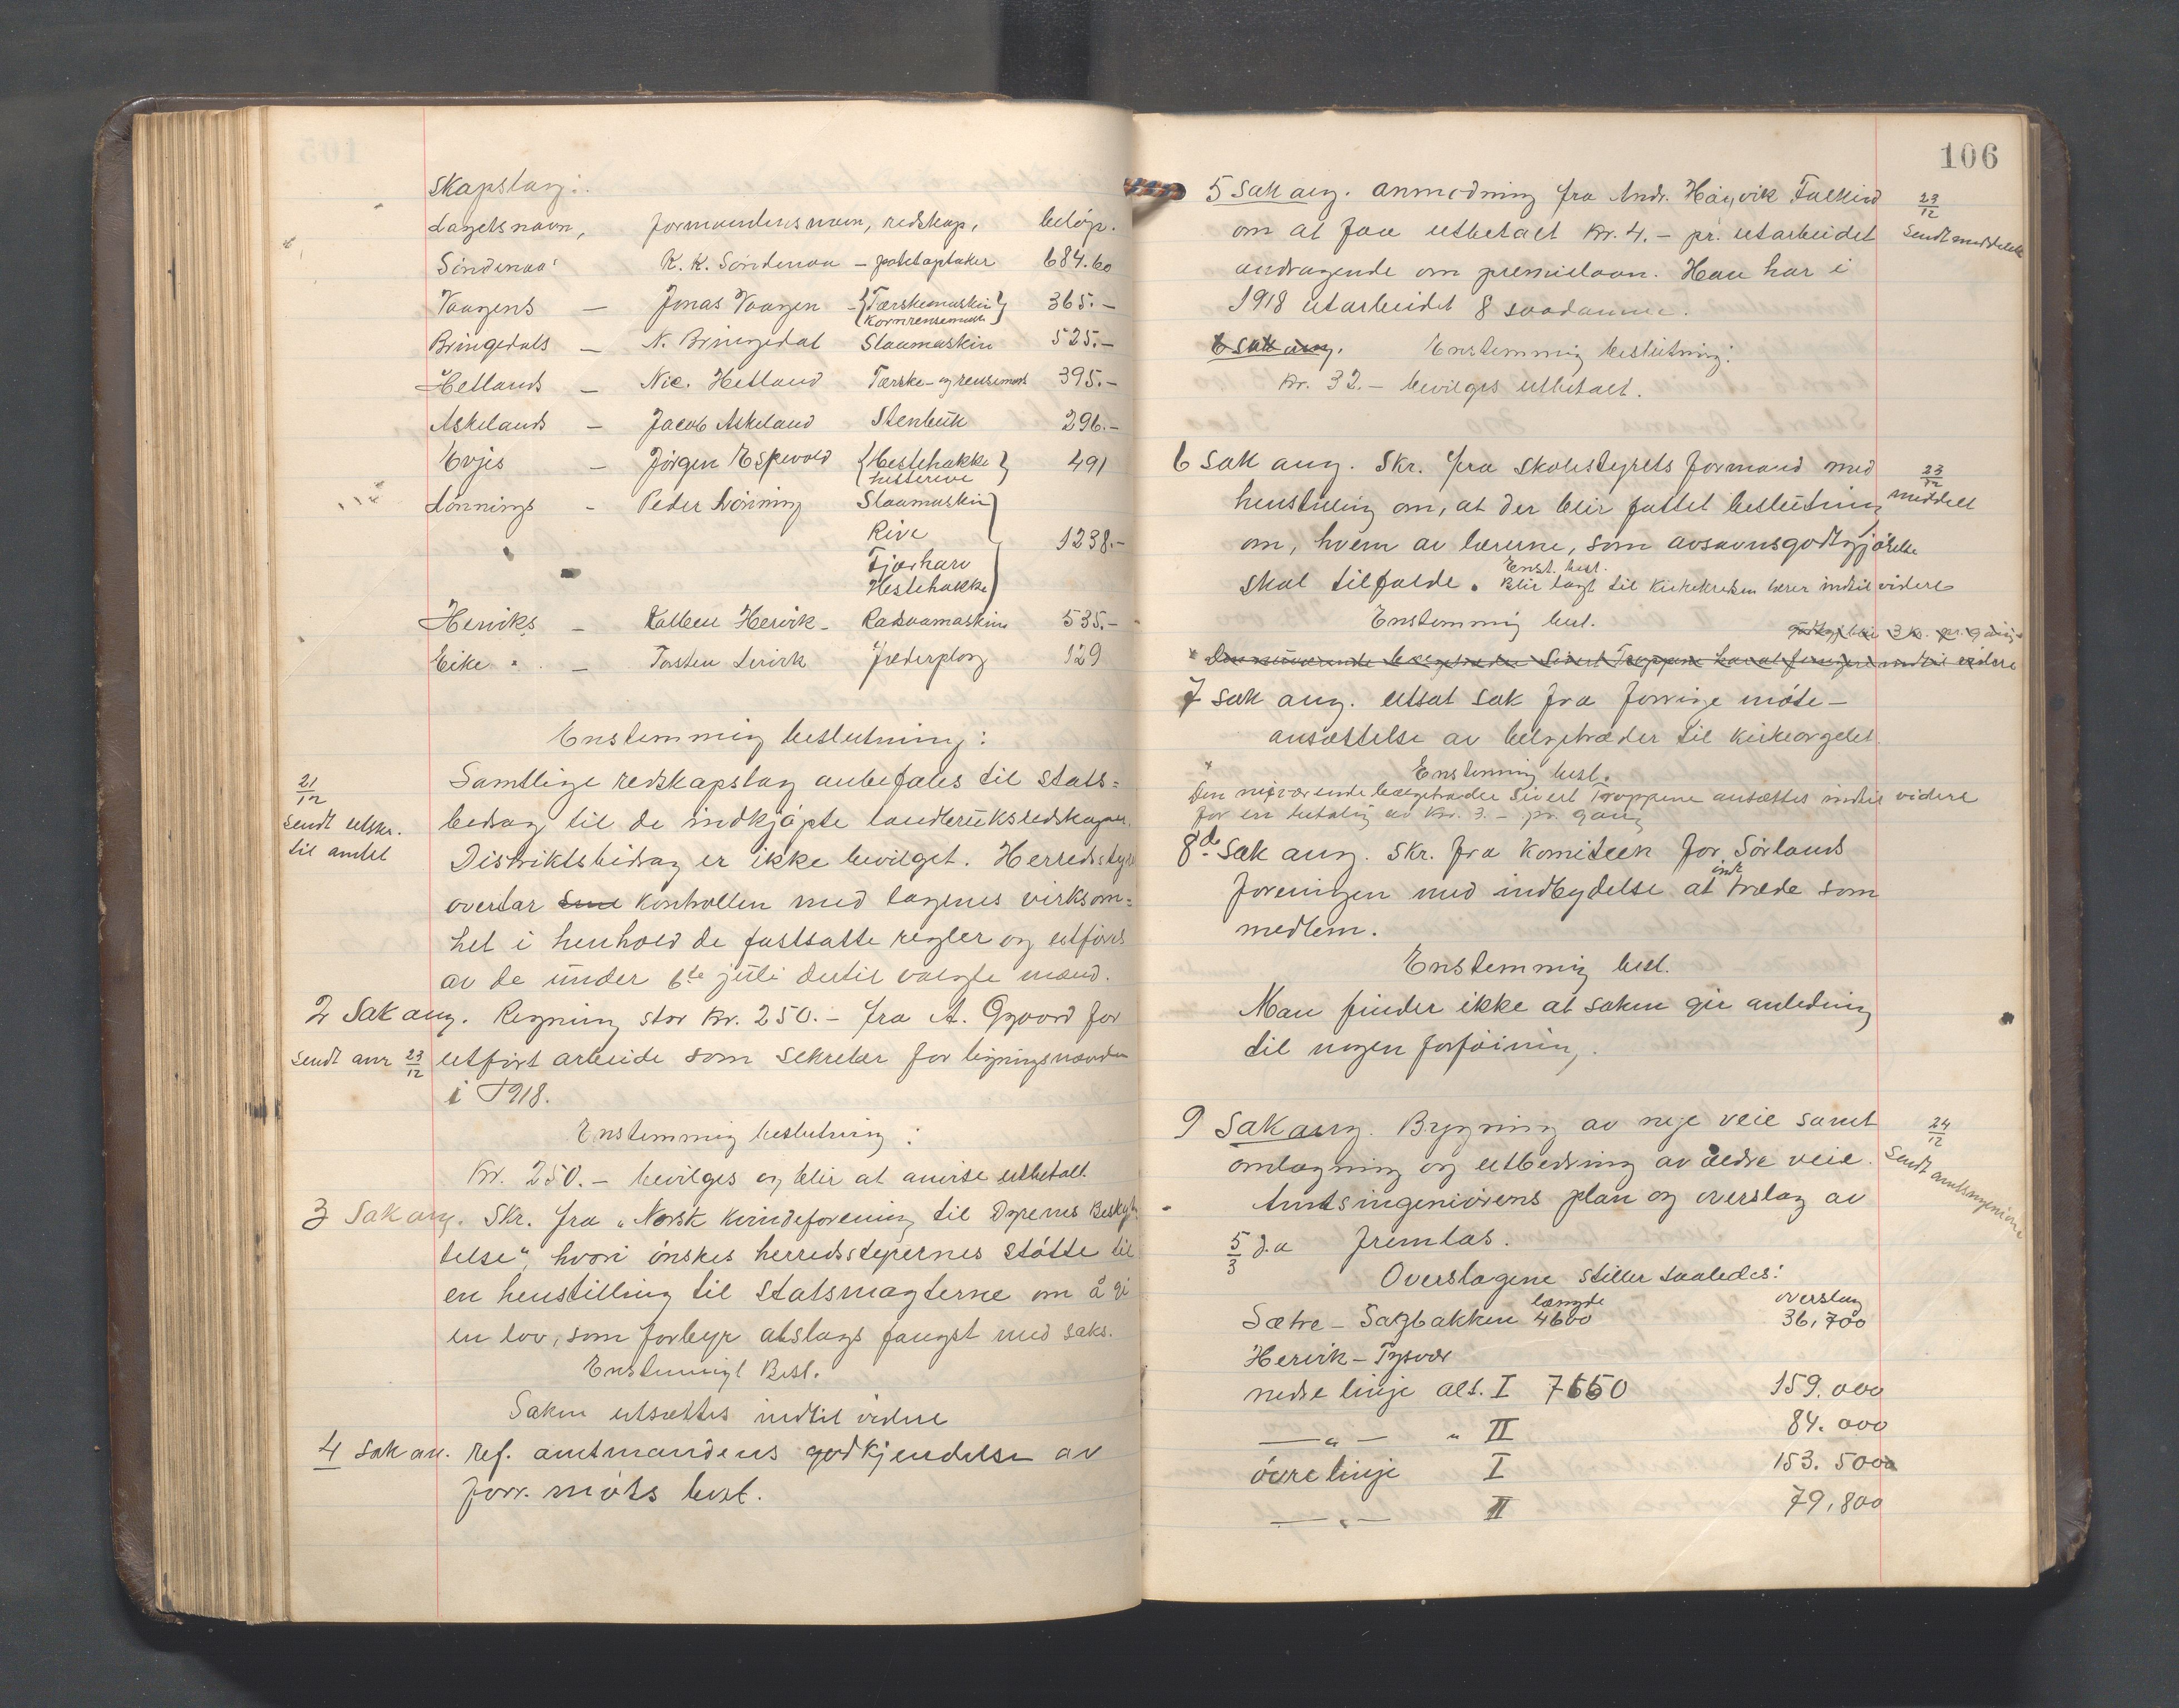 skapslag:
Lagets navn, formandens navn, redskap, beløp.
Söndenaa K. K. Söndenaa – potetoptaker 684.60
Vaagens — Jonas Vaagen – {Tærskemaskin} 365.–
{Kornrensemask}
Bringedals — N. Bringedal Slaamaskin 525.–
Hetlands — Nic. Hetland Tærske- og rensemask 395.–
Askelands — Jacob Askeland Stenbuk 296.–
Evjes — Jörgen Espevold {Hestehakke} 491
{hesterive}
Lönnings - Peder Lönning Slaamaskin
Rive
1238.–
Fjærharv
Hestehakke
Herviks — Kolbein Hervik – Radsaamaskin 535.–
Eike " — Torsten Lervik Jæderplog 129
Enstemmig beslutning:
21/12
sendt utskr.
til amtet
Samtlige redskapslag anbefales til stats=
bedrag til de indkjöpte landbruksredskaper.
Distriktsbidrag er ikke bevilget. Herredsstyre
overtar kontrollen med lagenes virksom=
het i henhold de fastsatte regler og utföres
av de under 6te juli dertil valgte mænd.
2 Sak ang. Regning stor kr. 250.– fra A. Gjaard for
sendt anv 23/12 utfört arbeide som sekretær for ligningsnævnden
i 1918.
Enstemmig beslutning:
Kr. 250.– bevilges og blir at anvise utbetalt.
3 Sak ang. Skr. fra „Norsk kvindeforening til Dyrenes Beskyt
telse", hvori önskes herredsstyrernes stötte til
en henstilling til statsmagterne om å gi
en lov, som forbyr atslags fangst med saks.
Enstemmigt Besl.
Saken utsættes indtil videre
4 sak an. ref. amtmandens godkjendelse av
forr. möts besl.
106
5 Sak ang. anmodning fra Andr. Høyvik Falkeid
om at faa utbetalt kr. 4.– pr. utarbeidet
andragende om premielaan. Han har i
1918 utarbeidet 8 saadanne.
23/12
Sendt meddelelse
6 Sak ang. Enstemmig beslutning:
Kr. 32.– bevilges utbetalt.
6 Sak ang. Skr. fra skolestyrets formand med
henstilling om, at der blir fattet beslutning
om, hvem av lærerne, som avsavnsgodtgjörelse
23/12
meddelt
Enst. besl.
skal tilfalde. Blir lagt til kirkekredsen lærer indtil videre
Enstemmig besl.
godtgj blir 3 kr. pr. gang
x Den nuværende belgetræder Sivert Troppene har at fungere indtil videre
7 Sak ang. utsat sak fra forrige möte –
ansættelse av belgetræder til kirkeorgelet.
x
Enstemmig besl.
Den nuværende belgetræder Sivert Troppene ansættes indtil videre
for en betaling av kr. 3.– pr. gang
8de Sak ang. Skr. fra komiteen for Sörlands
foreningen med indbydelse at indtræde som
medlem.
Enstemmig besl.
Man finder ikke at saken gir anledning
til nogen forföining.
9 Sak ang. Bygning av nye veie samt
omlægning og utbedring av ældre veie.
Amtsingeniörens plan og overslag av
5/3 d.a fremlas.
24/12
Sendt amtsingeniøren
Overslagene stiller saaledes:
længde overslag
Sætre – Sagbakken 4600 36,700
Hervik – Tysvær
nedre linje alt. I 7650 159.000
—„— „ II 84.000
övre linje I 153.500
—„— II 79,800